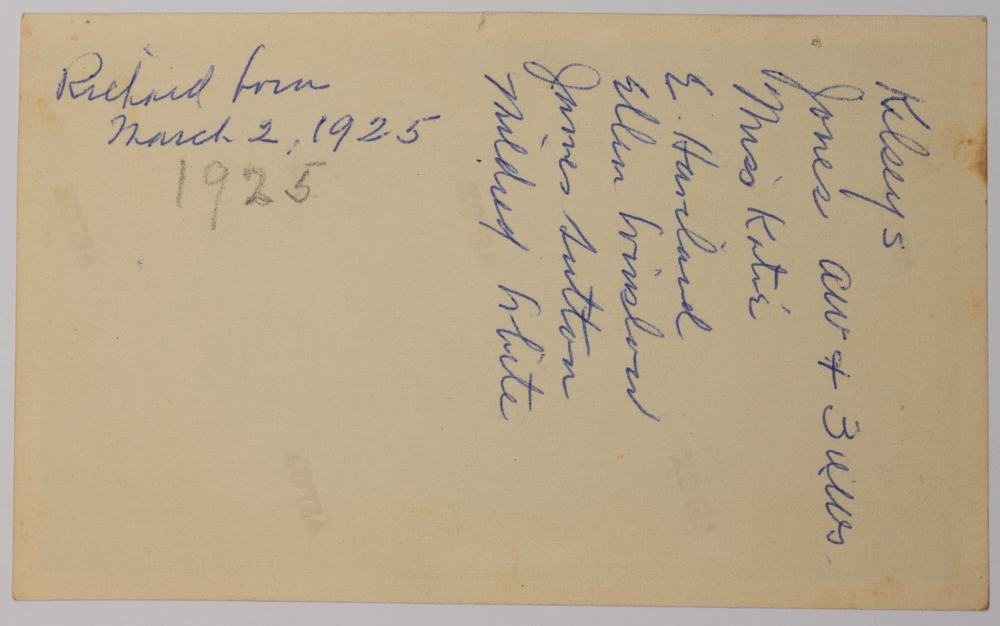 Richard born
March 2, 1925
1925
Kelseys
Jones aw + 3
Miss Katie
E. Harland
Ellen Winslow
James Sutton
Mildred White
ARTOX
ARTOX
ARTOX
ARTOX